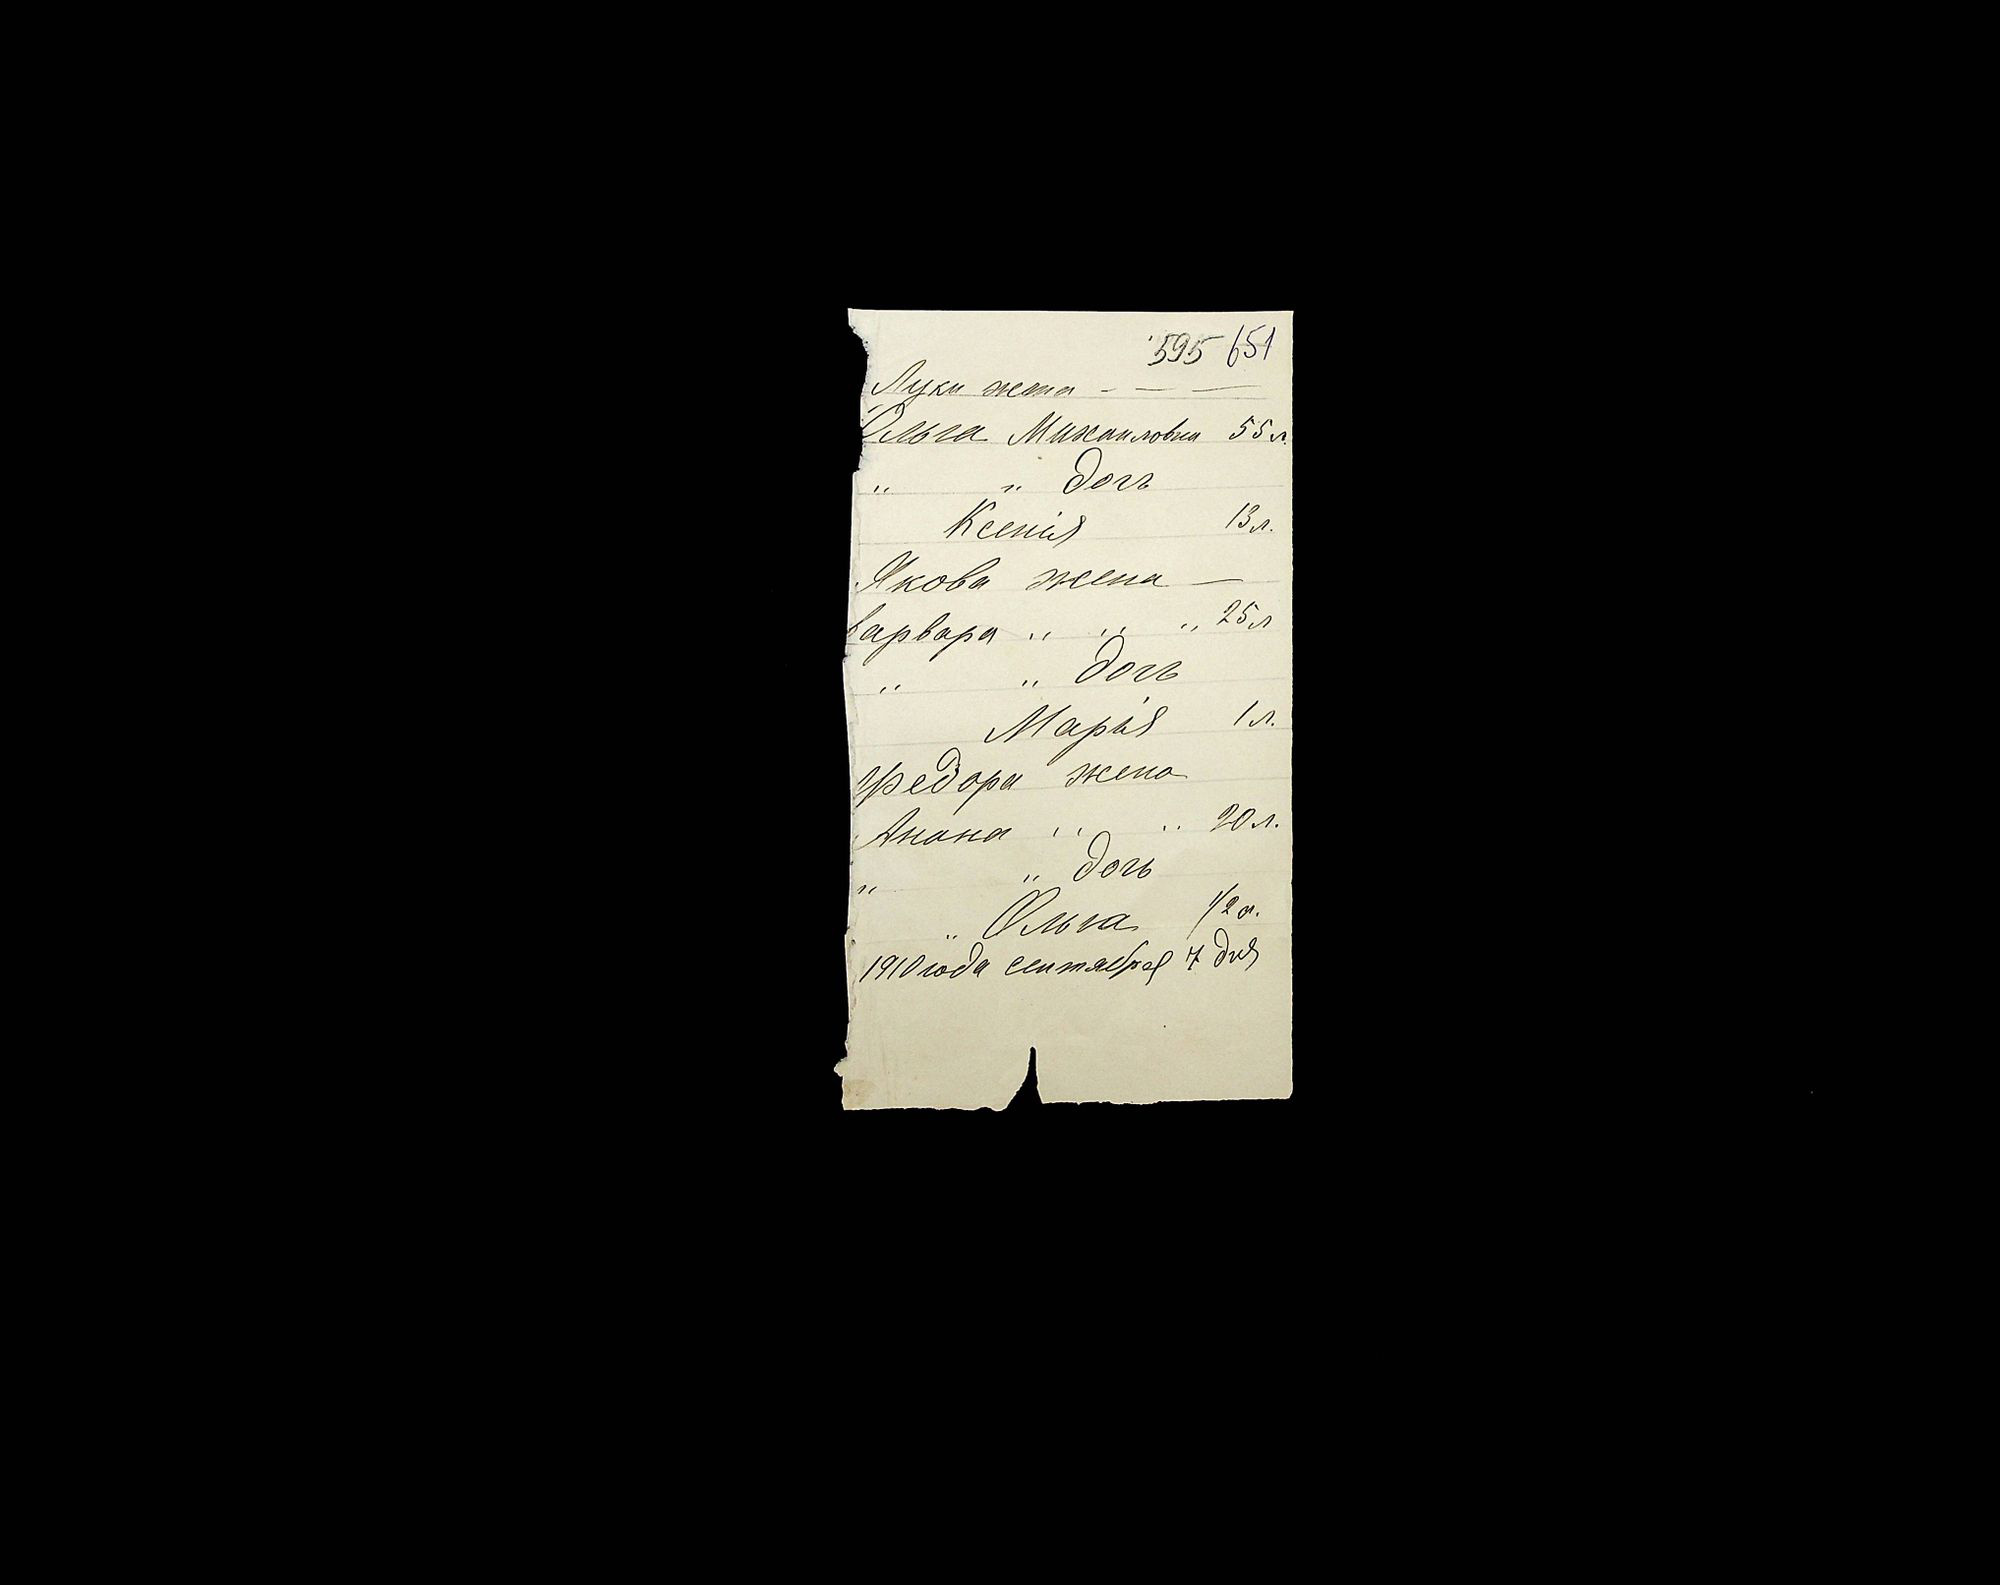 595 651
Луки жена - — —
Ольга Михаиловна 55 л.
" " дочь
Ксенія 13 л.
Якова жена —
Варвара " " " 25 л
" " дочь
Марія 1 л.
Федора жена
Анона " " 20 л.
" " дочь
" Ольга 1/2 л.
1910 года сентября 7 дня